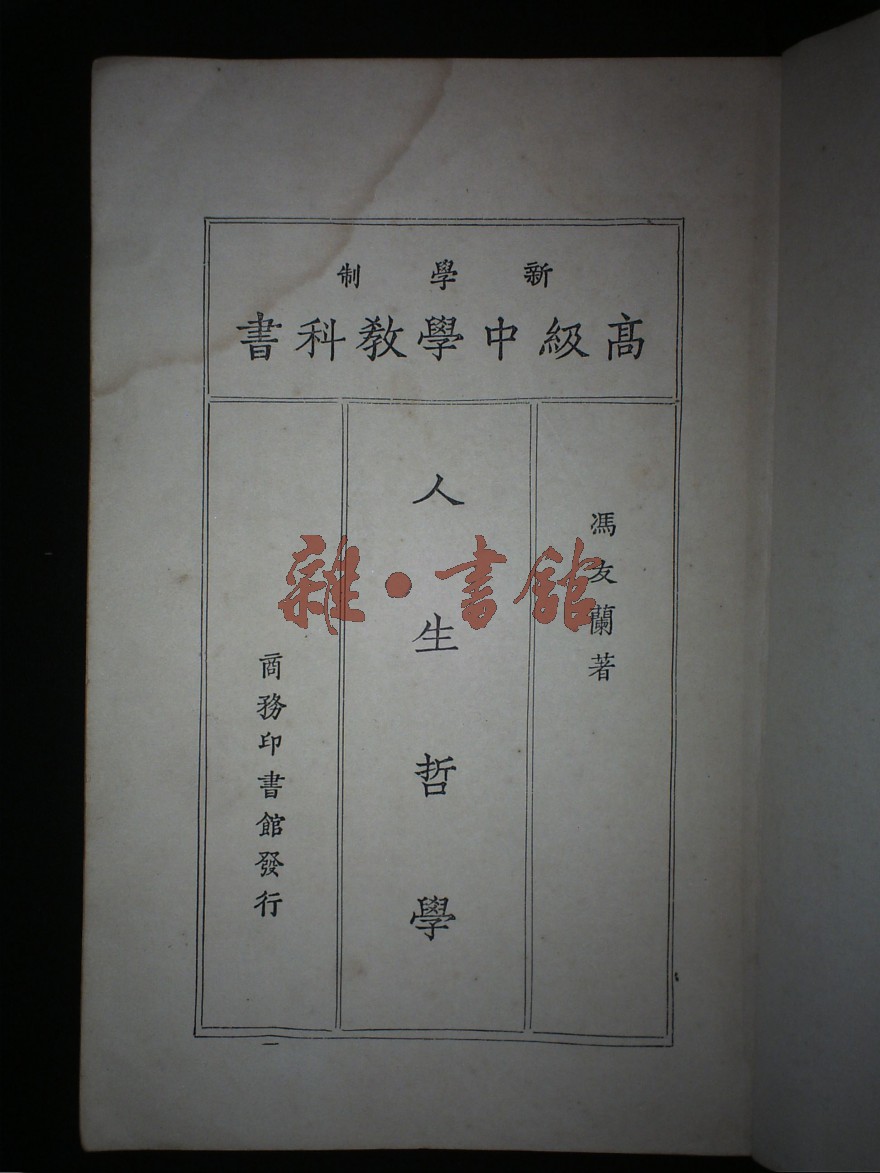 新學制
高級中學教科書
馮友蘭著
人生哲學
商務印書館發行
雜·書館